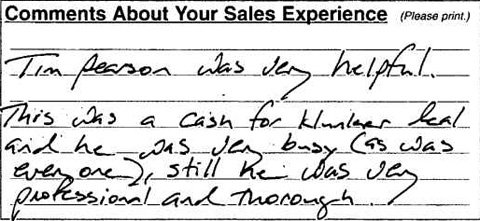 Comments About Your Sales Experience (Please print.)
Tim Pearson was very helpful.
This was a cash for klunker deal
and he was very busy (as was
everyone), still he was very
professional and thorough.